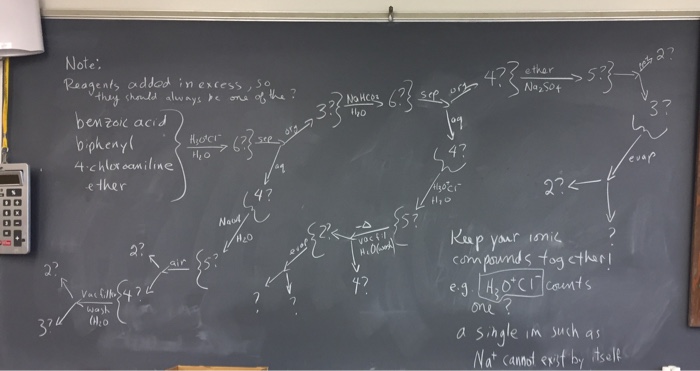 Note:
Reagents added in excess, so
they should always be one of the ?
benzoic acid
biphenyl
4-chloroaniline
ether
H₃O⁺Cl⁻
H₂O
6?
sep
org
aq
3?
NaHCO₃
H₂O
6?
sep
org
aq
4?
ether
Na₂SO₄
5?
2?
3?
evap
2?
?
4?
H₃O⁺Cl⁻
H₂O
5?
-Δ
vac fil
H₂O(wash)
4?
2?
evap
?
?
4?
NaOH
H₂O
5?
air
2?
4?
vac filter
wash
H₂O
2?
3?
Keep your ionic
compounds together!
e.g. H₃O⁺Cl⁻ counts
one ?
a single ion such as
Na⁺ cannot exist by itself